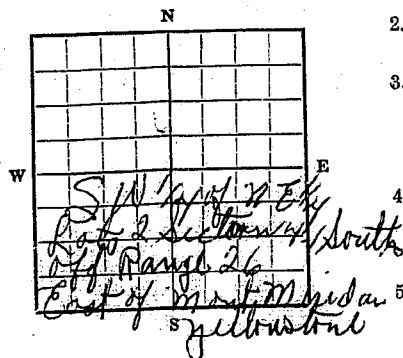 N
2.
3.
W E
S W 1/4 of N E 1/4
4
Lot 2 Section 4 South
of Range 26
East of Mont Meridan
5
S
Yellowstone